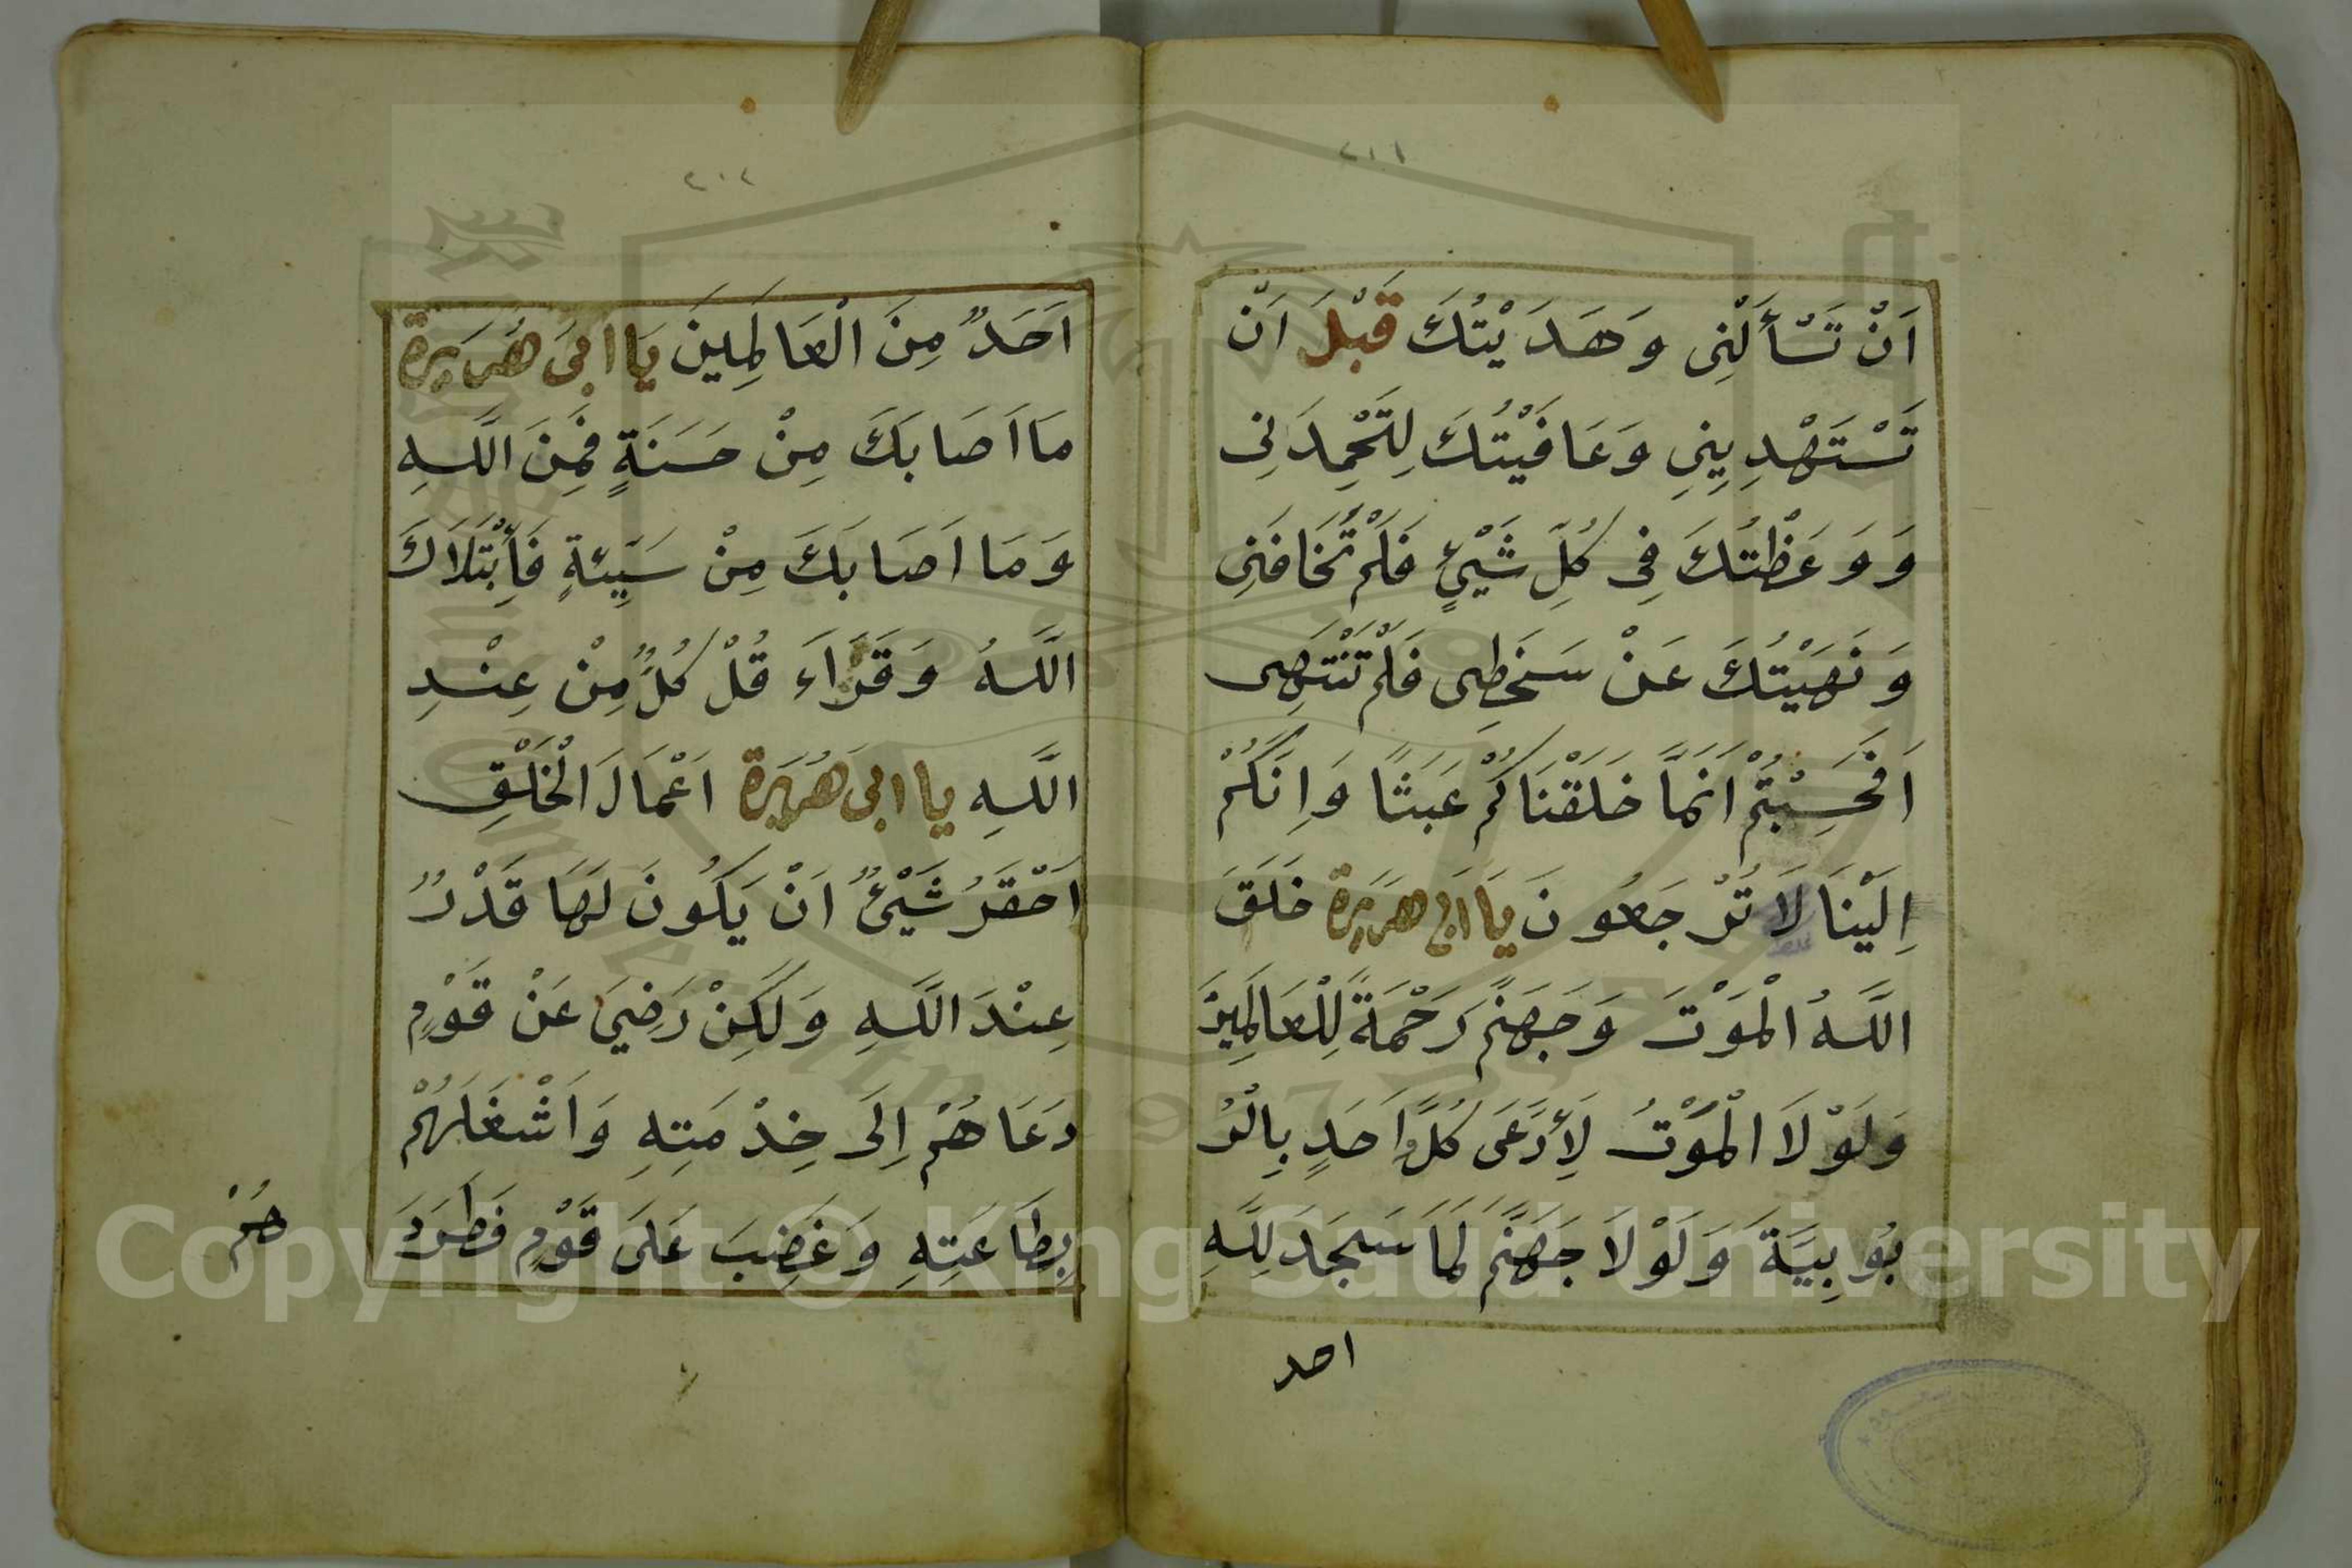 ٢١١
اَنْ تَسْأَلَنِى وَهَدَيْتُكَ قَبْلَ اَنْ
تَسْتَهْدِيِنِى وَعَافَيْتُكَ لِتَحْمِدَنِى
وَوَعَظْتُكَ فِى كُلِّ شَيْئٍ فَلَمْ تَخَافَنِى
وَنَهَيْتُكَ عَنْ سَخَطِى فَلَمْ تَنْتَهِى
اَفَحَسِبْتُمْ اَنَّمَا خَلَقْنَاكُمْ عَبَثًا وَاِنَّكُمْ
اِلَيْنَا لَا تُرْجَعُونَ يَا اَبِى هُرَيْرَة خَلَقَ
اللَّهُ الْمَوْتَ وَجَهَنَّمَ رَحْمَةً لِلْعَالَمِينَ
وَلَوْلَا الْمَوْتُ لَأِدَّعَى كُلُّ اَحَدٍ بِالْرُ
بُوبِيَّةَ وَلَوْلَا جَهَنَّمَ لَمَا سَجَدَ لِلَّهِ
احد
٢١٢
اَحَدٌ مِنَ الْعَالَمِينَ يَا ابِىَ هُرَيْرَة
مَا اَصَابَكَ مِنْ حَسَنَةٍ فَمِنَ اللَّهِ
وَمَا اَصَابَكَ مِنْ سَيِّئَةٍ فَأِبْتَلَاكَ
اللَّهُ وَقَرَاَءَ قُلْ كُلٌّ مِنْ عِنْدِ
اللَّهِ يا ابِىَ هُرَيْرَة اَعْمَالَ الْخَلْقِ
اَحْقَرُ شَيْئٌ اَنْ يَكُونَ لَهَا قَدْرٌ
عِنْدَ اللَّهِ وَلَكِنْ رَضِيَ عَنْ قَوْمٍ
دَعَاهُمْ اِلَى خِدْمَتِهِ وَاَشْغَلَهُمْ
بِطَاعَتِهِ وَغَضِبَ عَلَى قَوْمٍ فَطَرَدَ
هُمْ
Copyright © King Saud University